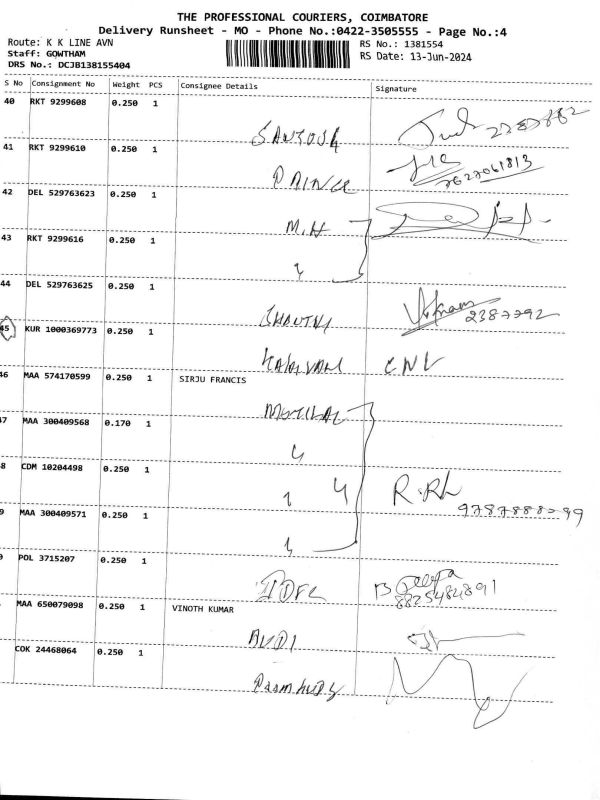 THE PROFESSIONAL COURIERS, COIMBATORE
Delivery Runsheet - MO - Phone No.:0422-3505555 - Page No.:4
Route: K K LINE AVN
Staff: GOWTHAM
DRS No.: DCJB138155404
RS No.: 1381554
RS Date: 13-Jun-2024
S No Consignment No Weight PCS Consignee Details Signature
40 RKT 9299608 0.250 1
SANTOSH
41 RKT 9299610 0.250 1
PRINCE
7627061813
42 DEL 529763623 0.250 1
M.H
43 RKT 9299616 0.250 1
44 DEL 529763625 0.250 1
SHANTHI
2387792
45 KUR 1000369773 0.250 1
CNL
46 MAA 574170599 0.250 1 SIRJU FRANCIS
MOTILAL
7 MAA 300409568 0.170 1
8 CDM 10204498 0.250 1
4
9 MAA 300409571 0.250 1
9787888099
POL 3715207 0.250 1
IDFC
B Deepa
8825484891
MAA 650079098 0.250 1 VINOTH KUMAR
AUDI
COK 24468064 0.250 1